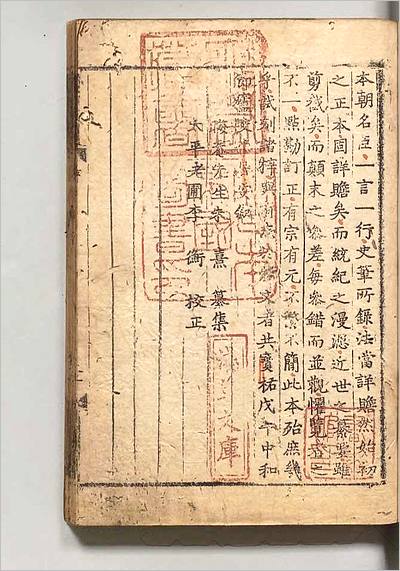 本朝名臣一言一行史筆所錄法當詳贍然始初
之正本固詳贍矣而統紀之漫漶近世之纂要雖
剪截矣而顛末之參差每參錯而並觀懼覽者之
不一點勘訂正有宗有元不繁不簡此本殆庶幾
乎試刻諸梓與有志於斯文者共寶祐戊午中和
節
晦菴先生朱 熹 纂集
太平老圃李 衡 校正
淺草文庫